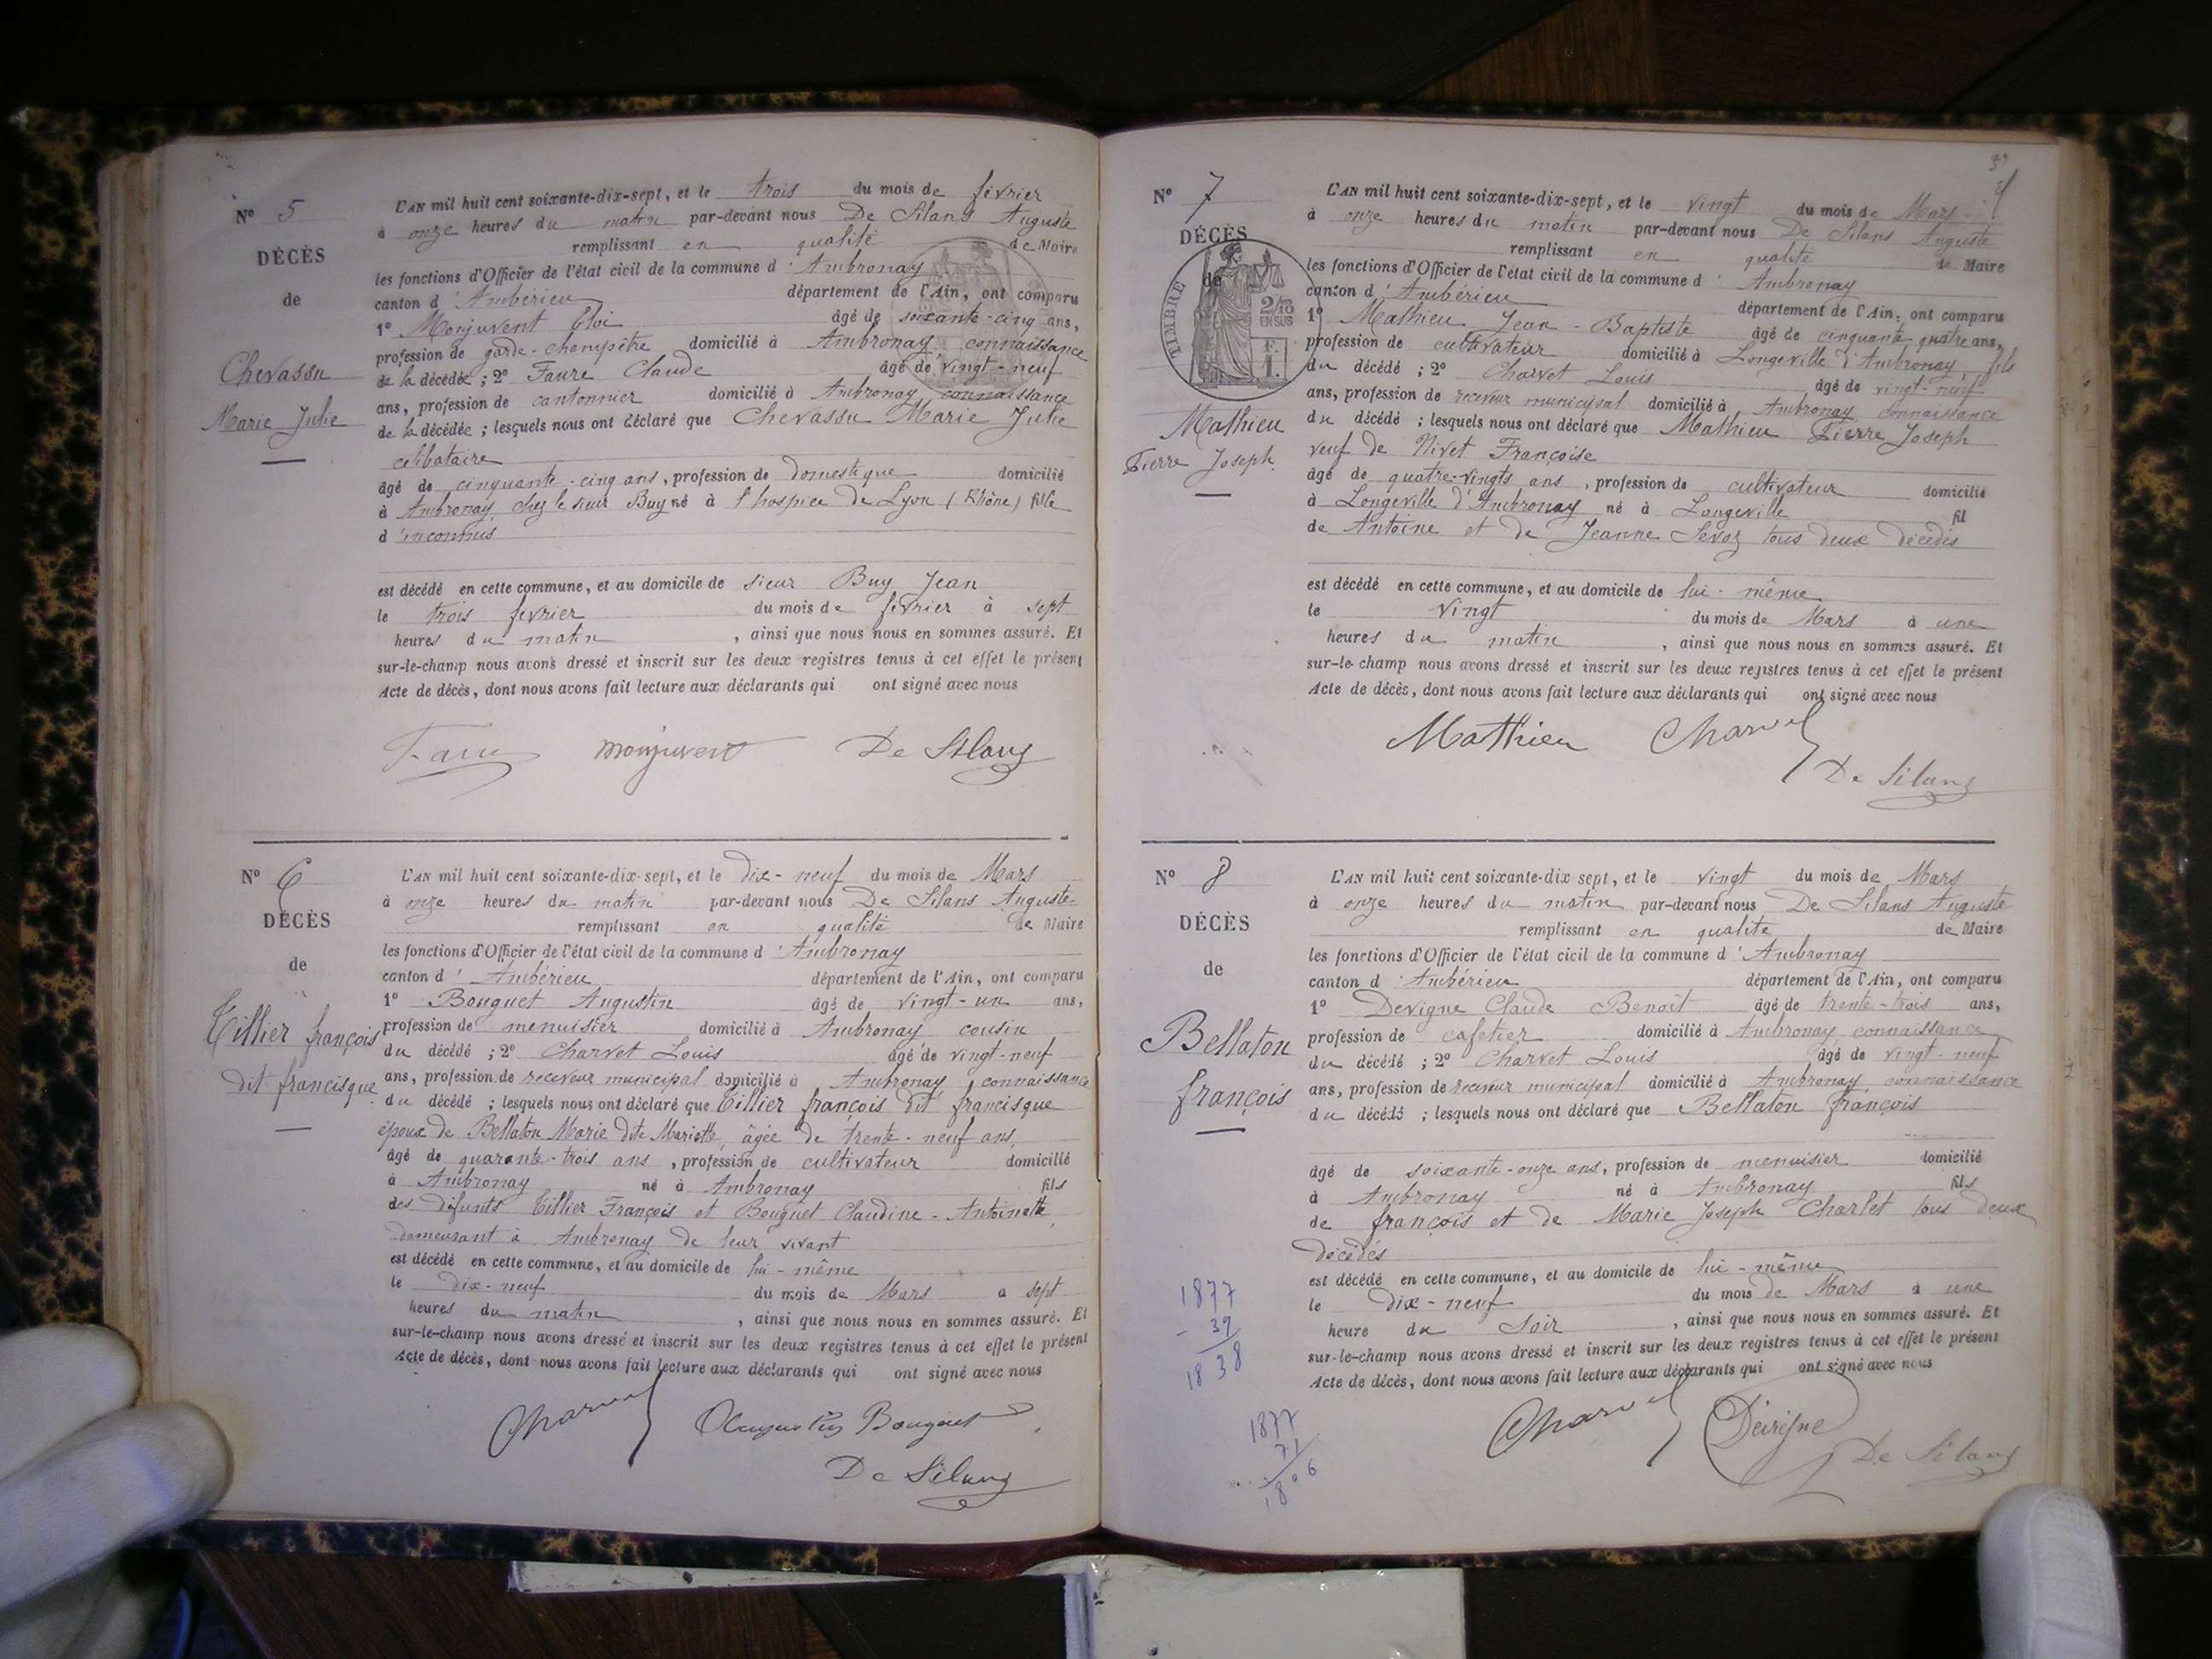 N° 5
DÉCÈS
de
Chevassu
Marie Julie
L'AN mil huit cent soixante-dix-sept, et le trois du mois de février
à onze heures du matin par-devant nous De Silans Auguste
remplissant en qualité de Maire
les fonctions d'Officier de l'état civil de la commune d'Ambronay
canton d'Ambérieu département de l'Ain, ont comparu
1° Monjuvent Eloi âgé de soixante-cinq ans,
profession de garde-champêtre domicilié à Ambronay, connaissance
de la décédée ; 2° Faure Claude âgé de vingt-neuf
ans, profession de cantonnier domicilié à Ambronay connaissance
de la décédée ; lesquels nous ont déclaré que Chevassu Marie Julie
célibataire
âgé de cinquante-cinq ans, profession de domestique domicilié
à Ambronay chez le sieur Buy né à l'hospice de Lyon (Rhône) fille
d'inconnus
est décédé en cette commune, et au domicile de sieur Buy Jean
le trois février du mois de février à sept
heures du matin, ainsi que nous nous en sommes assuré. Et
sur-le-champ nous avons dressé et inscrit sur les deux registres tenus à cet effet le présent
Acte de décès, dont nous avons fait lecture aux déclarants qui ont signé avec nous
Faure monjuvent De Silans
N° 6
DÉCÈS
de
Tillier françois
dit francisque
L'AN mil huit cent soixante-dix-sept, et le dix-neuf du mois de Mars
à onze heures du matin par-devant nous De Silans Auguste
remplissant en qualité de Maire
les fonctions d'Officier de l'état civil de la commune d'Ambronay
canton d'Ambérieu département de l'Ain, ont comparu
1° Bouguet Augustin âgé de vingt-un ans,
profession de menuisier domicilié à Ambronay cousin
du décédé ; 2° Charvet Louis âgé de vingt-neuf
ans, profession de receveur municipal domicilié à Ambronay connaissance
du décédé ; lesquels nous ont déclaré que Tillier françois dit francisque
époux de Bellaton Marie dite Mariette, âgée de trente-neuf ans,
âgé de quarante-trois ans, profession de cultivateur domicilié
à Ambronay né à Ambronay fils
des défunts Tillier François et Bouguet Claudine-Antoinette,
demeurant à Ambronay de leur vivant
est décédé en cette commune, et au domicile de lui-même
le dix-neuf du mois de Mars à sept
heures du matin, ainsi que nous nous en sommes assuré. Et
sur-le-champ nous avons dressé et inscrit sur les deux registres tenus à cet effet le présent
Acte de décès, dont nous avons fait lecture aux déclarants qui ont signé avec nous
Charvet Augustin Bouguet
De Silans
N° 7
DÉCÈS
de
TIMBRE
2/10
EN SUS
F.
1.
Mathieu
Pierre Joseph
L'AN mil huit cent soixante-dix-sept, et le vingt du mois de Mars
à onze heures du matin par-devant nous De Silans Auguste
remplissant en qualité de Maire
les fonctions d'Officier de l'état civil de la commune d'Ambronay
canton d'Ambérieu département de l'Ain, ont comparu
1° Mathieu Jean-Baptiste âgé de cinquante quatre ans,
profession de cultivateur domicilié à Longeville d'Ambronay, fils
du décédé ; 2° Charvet Louis âgé de vingt-neuf
ans, profession de receveur municipal domicilié à Ambronay connaissance
du décédé ; lesquels nous ont déclaré que Mathieu Pierre Joseph
veuf de Nivet Françoise
âgé de quatre-vingts ans, profession de cultivateur domicilié
à Longeville d'Ambronay né à Longeville fil
de Antoine et de Jeanne Sevoz tous deux décédés
est décédé en cette commune, et au domicile de lui-même
le vingt du mois de Mars à une
heures du matin, ainsi que nous nous en sommes assuré. Et
sur-le-champ nous avons dressé et inscrit sur les deux registres tenus à cet effet le présent
Acte de décès, dont nous avons fait lecture aux déclarants qui ont signé avec nous
Mathieu Charvet
De Silans
N° 8
DÉCÈS
de
Bellaton
françois
L'AN mil huit cent soixante-dix sept, et le vingt du mois de Mars
à onze heures du matin par-devant nous De Silans Auguste
remplissant en qualité de Maire
les fonctions d'Officier de l'état civil de la commune d'Ambronay
canton d'Ambérieu département de l'Ain, ont comparu
1° Devigne Claude Benoit âgé de trente-trois ans,
profession de cafetier domicilié à Ambronay connaissance
du décédé ; 2° Charvet Louis âgé de vingt-neuf
ans, profession de receveur municipal domicilié à Ambronay connaissance
du décédé ; lesquels nous ont déclaré que Bellaton françois
âgé de soixante-onze ans, profession de menuisier domicilié
à Ambronay né à Ambronay fils
de françois et de Marie Joseph Charlet tous deux
décédés
est décédé en cette commune, et au domicile de lui-même
le dix-neuf du mois de Mars à une
heure du Soir, ainsi que nous nous en sommes assuré. Et
sur-le-champ nous avons dressé et inscrit sur les deux registres tenus à cet effet le présent
Acte de décès, dont nous avons fait lecture aux déclarants qui ont signé avec nous
Charvet Devigne
De Silans
1877
- 39
1838
1877
71
1806